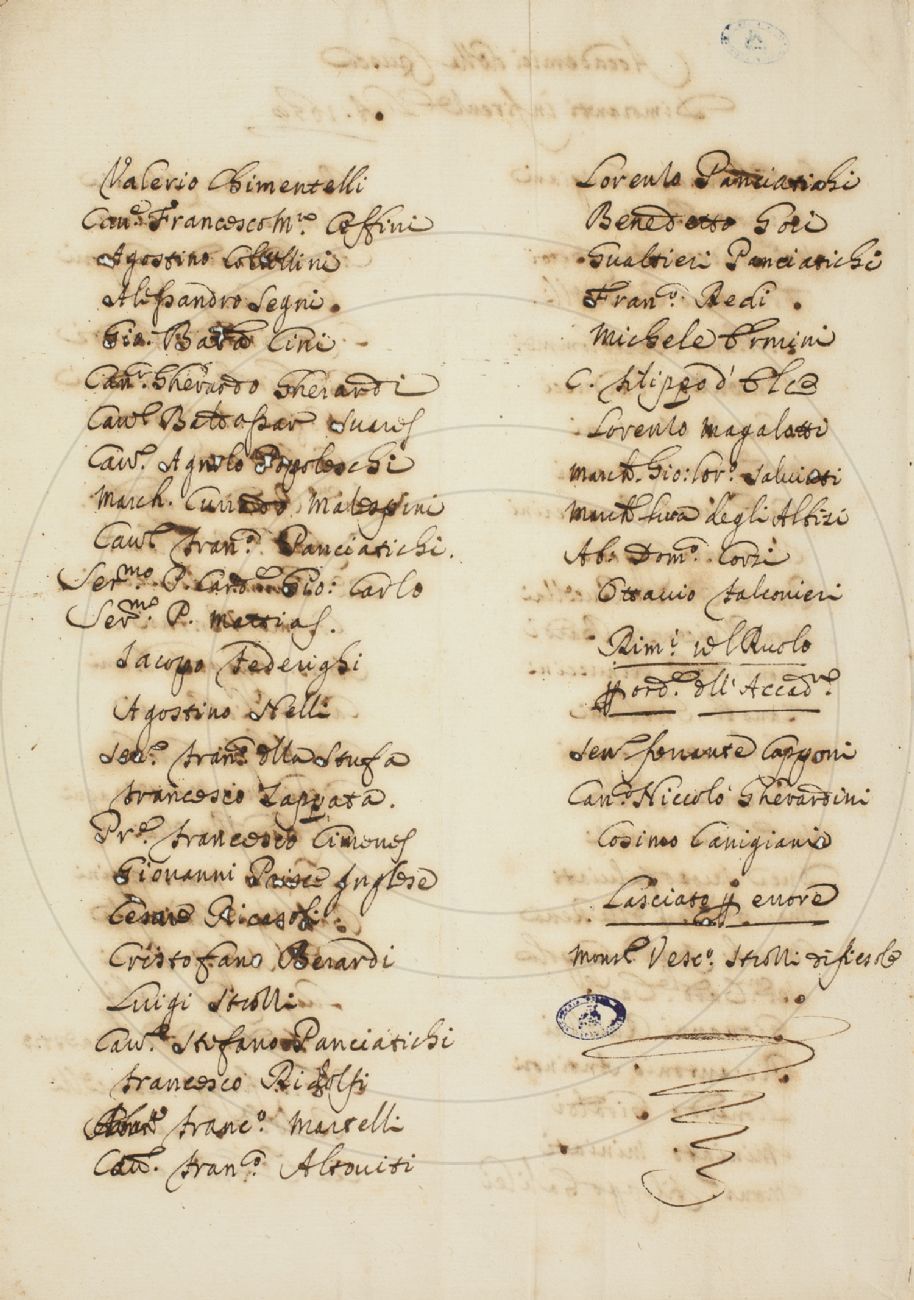 Valerio Chimentelli
Cau.e Francesco M.a Ceffini
Agostino Coltellini
Alessandro Segni
Gio. Bat.a Cini
Can.co Gherardo Gherardi
Cau.e Baldassar Suares
Cau.e Agnolo Popoleschi
March. Malespini
Cau.e Fran.o Panciatichi.
Ser.mo P. Card.le Gio: Carlo
Ser.mo P. Mattias.
Jacopo Federighi
Agostino Nelli
Sen.e Fran.o dlla Stufa
Francesco Zappata.
Pre. Francesco Cimenes
Giovanni Price Inglese
Cesare Ricasoli
Cristofano Berardi
Luigi Strozzi
Cau.e Stefano Panciatichi
Francesco Ridolfi
Franc.o Martelli
Cau.e Fran.o Altoviti
Lorenzo Panciatichi
Benedetto Gori
Gualtieri Panciatichi
Fran.o Redi
Michele Ermini
C. Filippo d' Elci
Lorenzo Magalotti
March. Gio: Lor.o Salviati
March. Luca degli Albizi
Ab. Dom.o Corzi
Ottavio Falconieri
Rim.i nel Ruolo
p ord.e dll' Accad.a
Sen.e ferrante Capponi
Can.o Niccolò Gherardini
Cosimo Canigiani
Lasciato p errore
Mons.e Vesc.o Strozzi di fiesole